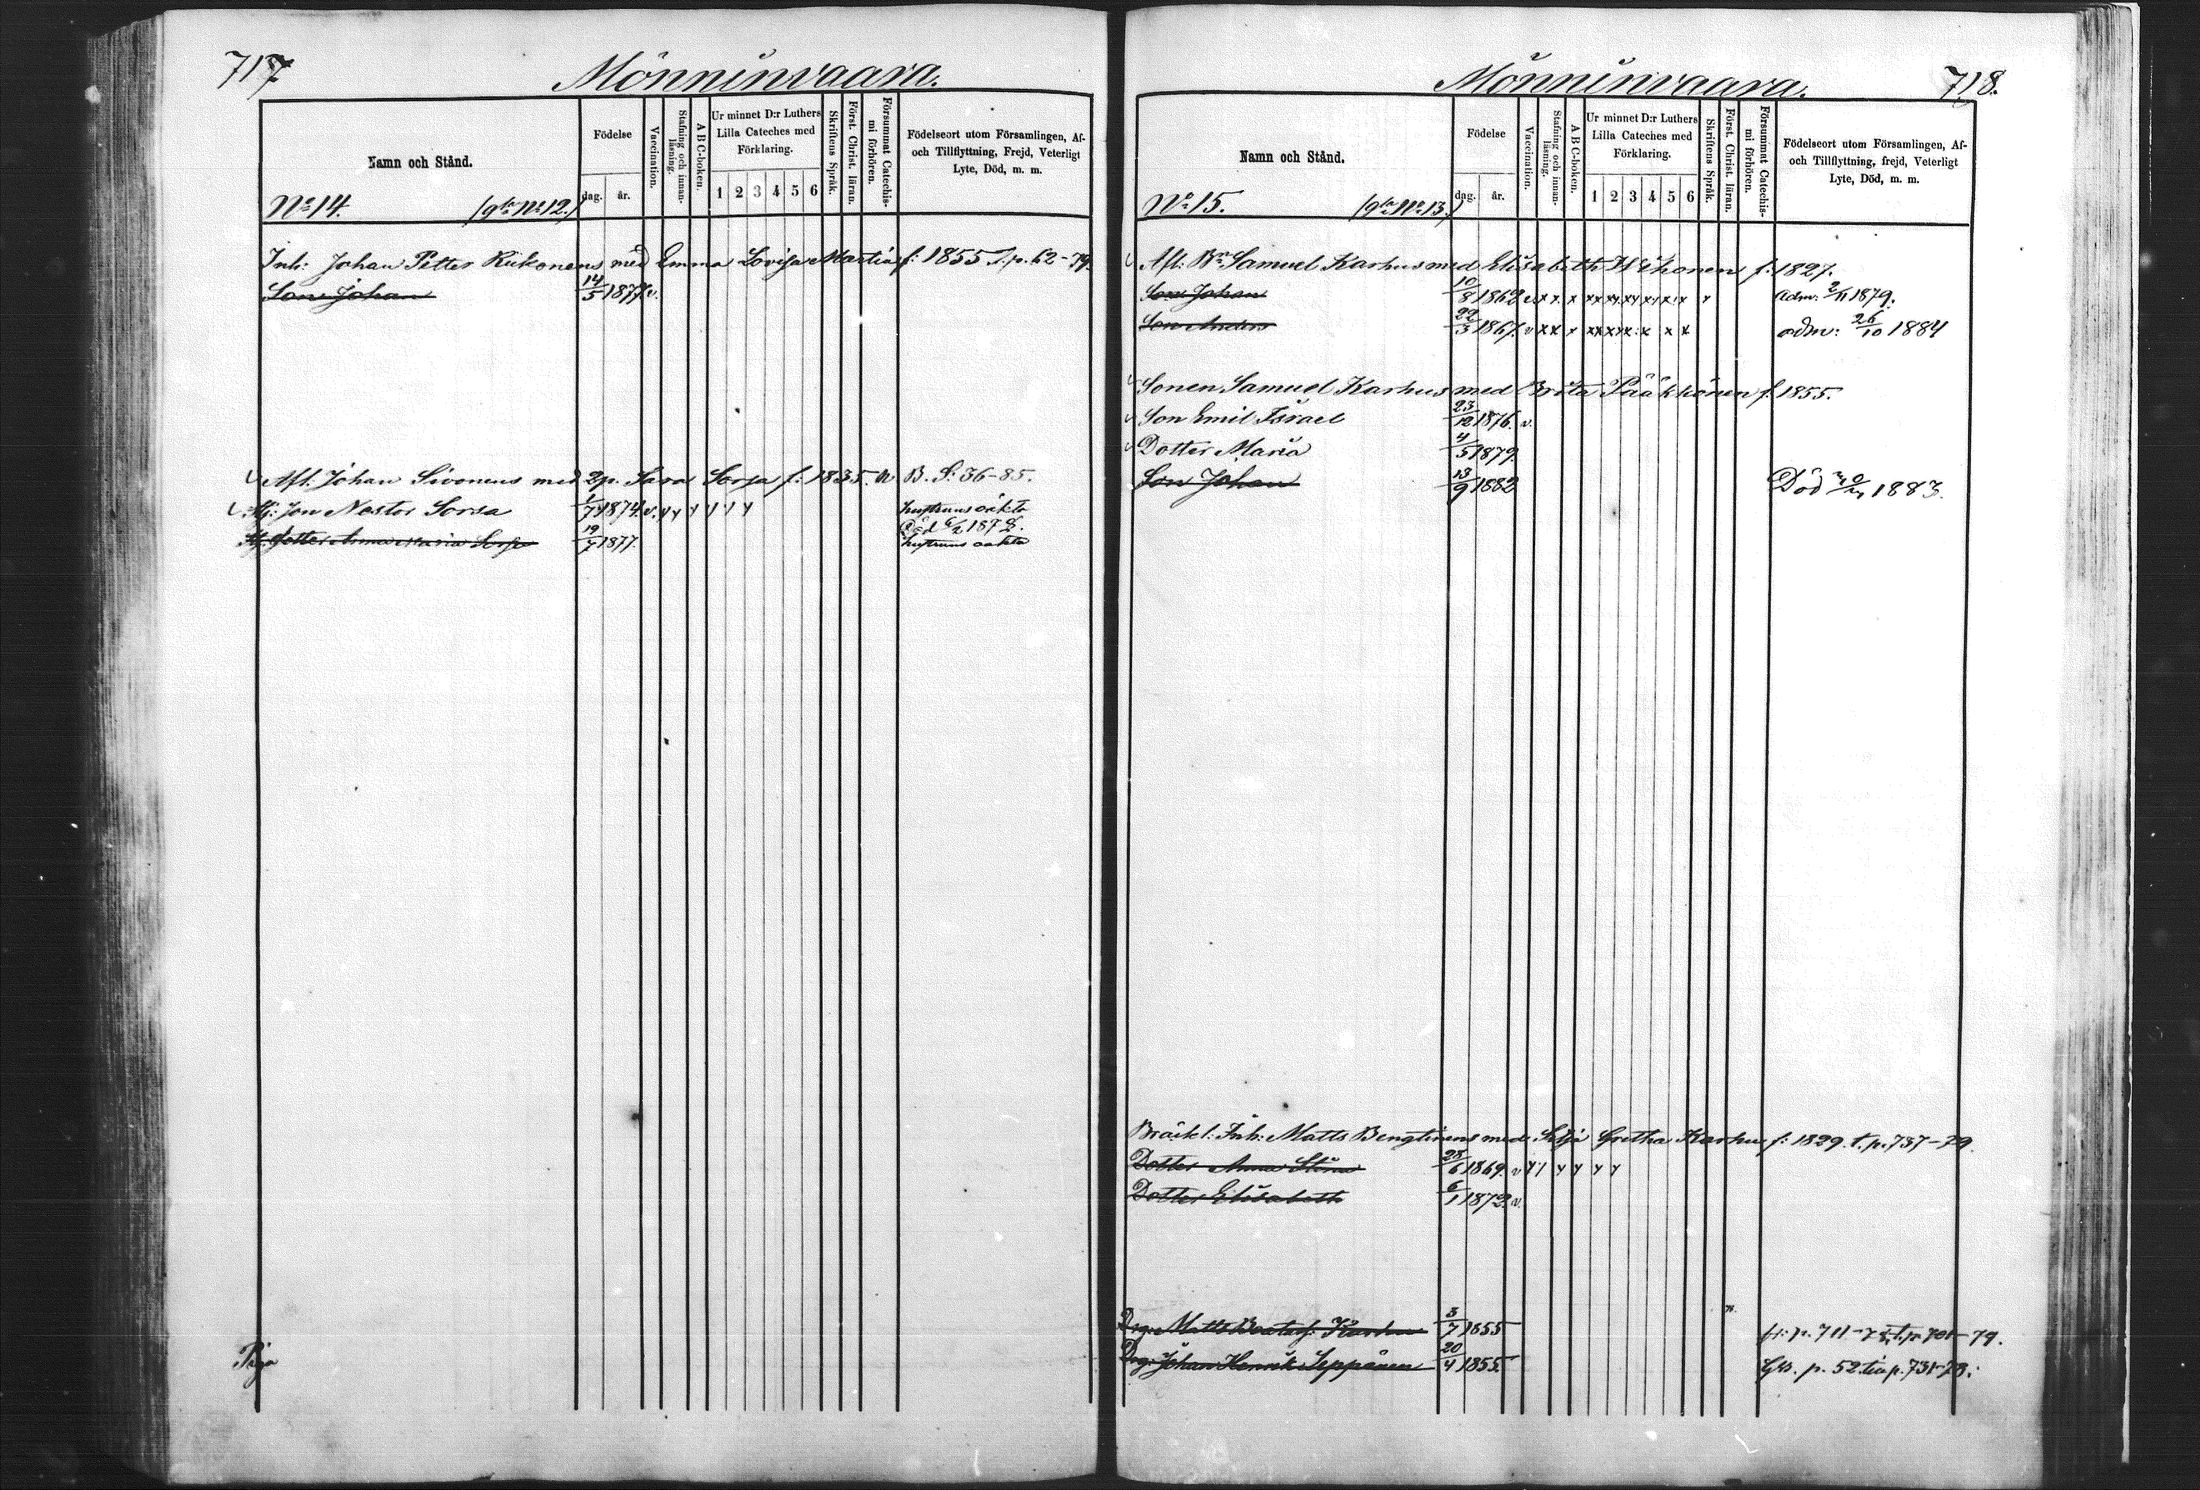 717
Mönninvaara.
Namn och Stånd.
Födelse
dag.
år.
Vaccination.
Stafning och innanläsning.
A B C-boken.
Ur minnet D:r Luthers Lilla Cateches med Förklaring.
1 2 3 4 5 6
Skriftens Språk.
Först. Christ. läran.
Försummat Catechismi förhören.
Födelseort utom Församlingen, Af- och Tillflyttning, Frejd, Veterligt Lyte, Död, m. m.
No 14. (gla No 12.)
Inh: Johan Petter Riikonens med Emma Lovisa Martia f: 1855 T. p. 62-79.
Son Johan 14/5 1877 v.
Afl. Johan Sivonens med Sara Sorsa f: 1835. B. S: 36-85.
Son Nestor Sorsa 1/7 1874 v. hustruns oäkta
Död 1878.
Dotter Anna Maria Sorsa 19/7 1877. hustruns oäkta
Piga
718.
Mönninvaara.
Namn och Stånd.
Födelse
dag.
år.
Vaccination.
Stafning och innanläsning.
A B C-boken.
Ur minnet D:r Luthers Lilla Cateches med Förklaring.
1 2 3 4 5 6
Skriftens Språk.
Först. Christ. läran.
Försummat Catechismi förhören.
Födelseort utom Församlingen, Af- och Tillflyttning, frejd, Veterligt Lyte, Död, m. m.
No 15. (gla No 13.)
Afl: Bn Samuel Karhus med Elisabeth Ihonen f: 1827.
Son Johan 10/8 1862 v. x x x x x x x x x x Adm: 2/11 1879.
Son Anders 22/3 1867. v x x x x x x x x x adm: 26/10 1884
Sonen Samuel Karhus med Brita Pääkkönen f. 1855.
Son Emil Israel 23/12 1876. v.
Dotter Maria 4/5 1879.
Son Johan 13/9 1882 Död 1883.
Bräckl: Inh: Matts Bengtinens med Gretha Karhu f: 1829. t. p. 737-79.
Dotter Anna Stina 28/6 1869. v
Dotter Elisabeth 6/1 1873. v.
Drg: Matts Karhu 3/7 1855 fr: p. 711- t. p. 701-79.
Drg: Johan Henrik Seppänen 20/4 1855. p. 52. p. 731-78.